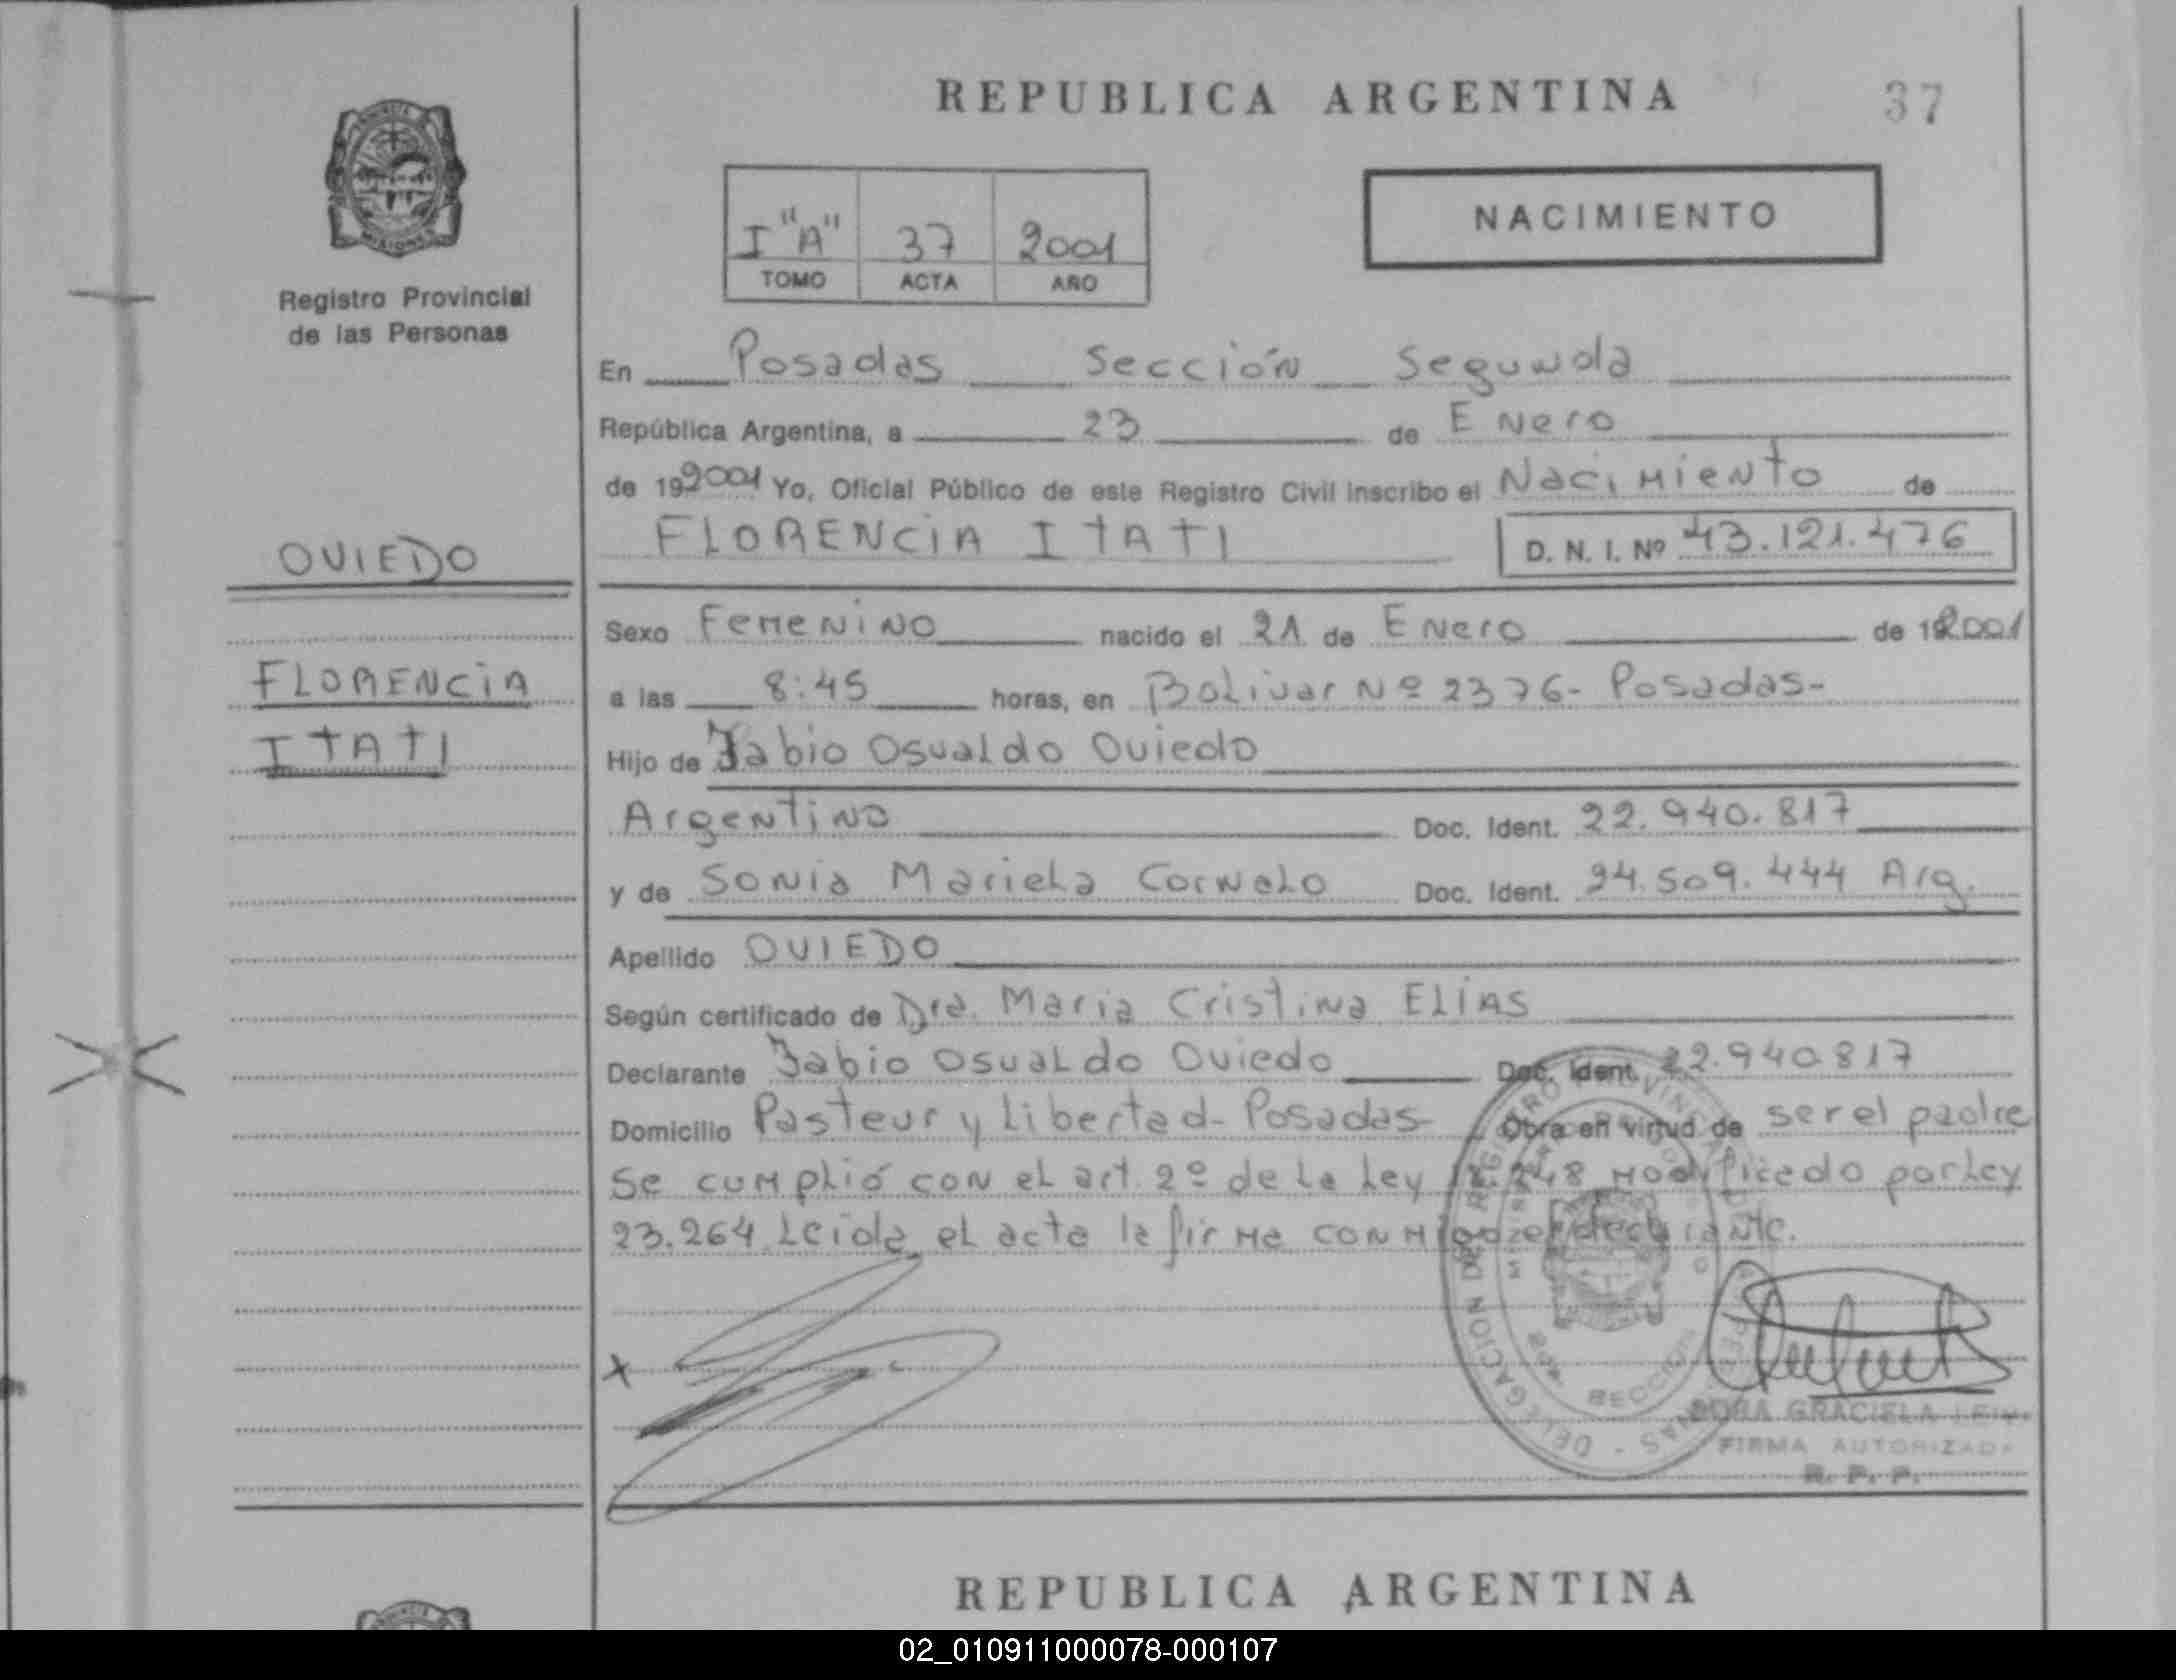 REPUBLICA ARGENTINA
37
I "A" 37 2001
TOMO ACTA AÑO
NACIMIENTO
Registro Provincial
de las Personas
En Posadas Sección Segunda
República Argentina, a 23 de Enero
de 192001 Yo, Oficial Público de este Registro Civil inscribo el Nacimiento de
FLORENCIA ITATI D. N. I. Nº 43.121.476
OVIEDO
FLORENCIA
ITATI
Sexo Femenino nacido el 21 de Enero de 192001
a las 8:45 horas, en Bolivar Nº 2376- Posadas-
Hijo de Fabio Osvaldo Oviedo
Argentino Doc. Ident. 22.940.817
y de Sonia Mariela Cornelo Doc. Ident. 24.509.444 Arg.
Apellido OVIEDO
Según certificado de Dra. Maria Cristina ELIAS
Declarante Fabio Osvaldo Oviedo Doc. Ident. 22.940817
Domicilio Pasteur y Libertad- Posadas- Obra en virtud de ser el padre
Se cumplió con el art. 2º de la Ley 18.248 modificado por Ley
23.264 Leida el acta la firma conmigo el declarante.
X
DELEGACION DE REGISTRO
SECCION
DORA GRACIELA
FIRMA AUTORIZADA
R. P. P.
REPUBLICA ARGENTINA
02_010911000078-000107